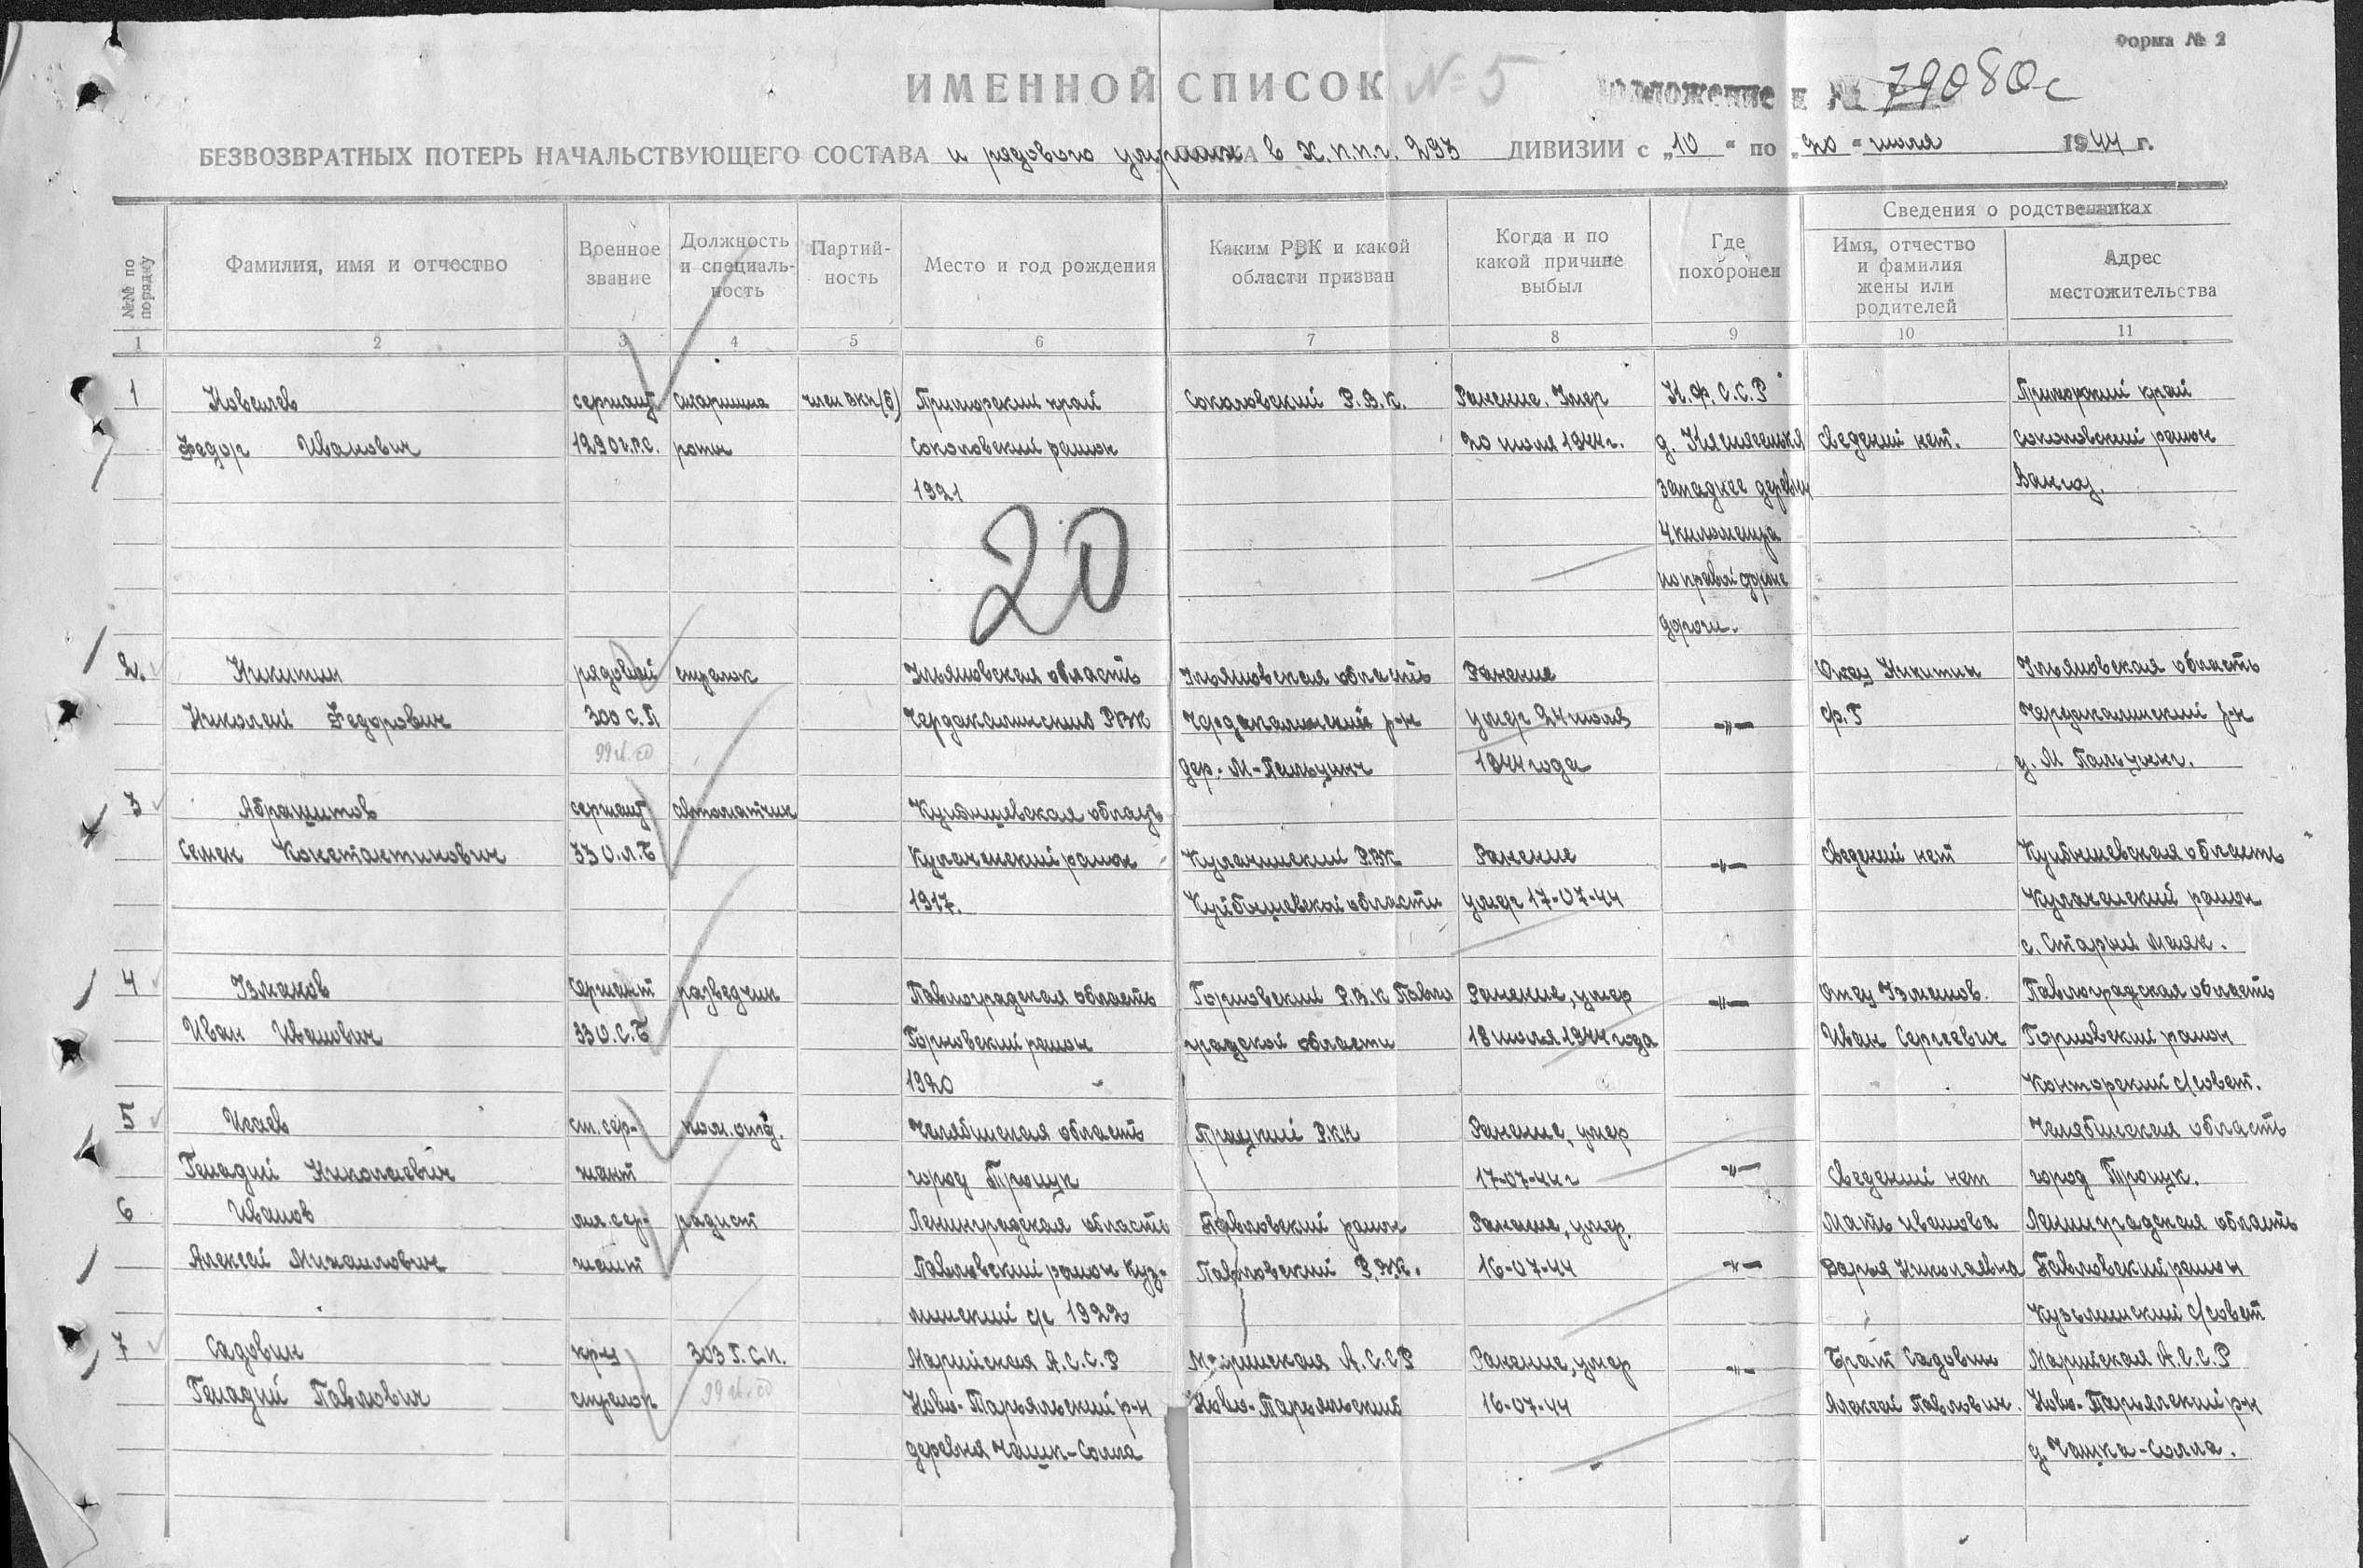 Форма № 2
ИМЕННОЙ СПИСОК № 5
к № 79080с
БЕЗВОЗВРАТНЫХ ПОТЕРЬ НАЧАЛЬСТВУЮЩЕГО СОСТАВА и рядового умерших в Х.П.П.Г. 293 ДИВИЗИИ с „10" по „20" июля 1944 г.
№№ по порядку
Фамилия, имя и отчество
Военное звание
Должность и специальность
Партийность
Место и год рождения
Каким РВК и какой области призван
Когда и по какой причине выбыл
Где похоронен
Сведения о родственниках
Имя, отчество и фамилия жены или родителей
Адрес местожительства
1 2 3 4 5 6 7 8 9 10 11
1 Ковелев сержант старшина член ВКП(б) Приморский край Соколовский Р.В.К. Ранение. Умер К.Ф.С.С.Р Приморский край
Федор Иванович 1290 г.п.с. роты Соколовский район 20 июля 1944 г. д. сведений нет. Соколовский район
1921 западнее деревни
20
4 километра
по правой стороне
дороги.
2. Никитин рядовой стрелок Ульяновская область Ульяновская область Ранение Отец Никитин Ульяновская область
Николай Федорович 300 с.п Чердаклинский РВК Чердаклинский р-н умер 24 июля -"- Ф.Г Чердаклинский р-н
99 гв. сд дер. М-Пальцино 1944 года д. М Пальцино.
3 Абрашитов сержант автоматчик Куйбышевская область
Семен Константинович 33 О.Л.Б район РВК Ранение -"- сведений нет Куйбышевская область
1917. Куйбышевской области умер 17-07-44 район
с. Старый Маяк.
4 Узмаков сержант разведчик Павлоградская область Горновский Р.В.К Павло Ранение, умер -"- Отец Узманов. Павлоградская область
Иван Иванович 33 О.С.Б Горновский район градской области 18 июля 1944 года Иван Сергеевич Горновский район
1920 Конторский с/совет.
5 Исаев ст. сер- ком. отд. Челябинская область Троцкий РКК Ранение, умер Челябинская область
Генадий Николаевич жант город Троицк 17-07-44 г -"- Сведений нет город Троицк.
6 Иванов мл. сер- радист Ленинградская область Павловский район Ранение, умер. Мать Иванова Ленинградская область
Алексей Михаилович жант Павловский район Куз- Павловский Р.В.К. 16-07-44 -"- Дарья Николаевна Павловский район
минский с/с 1922 Кузьминский с/совет
7 Садовин кр-ц 303 Г.С.П. Марийская А.С.С.Р Марийская А.С.С.Р Ранение, умер -"- Брат Садовин Марийская А.С.С.Р
Генадий Павлович стрелок 99 гв. сд Ново-Тарьяльский р-н Ново-Тарьяльский 16-07-44 Алексей Павлович. Ново-Тарьялский р-н
деревня Чашк-Солла д. Чашка-Солла.